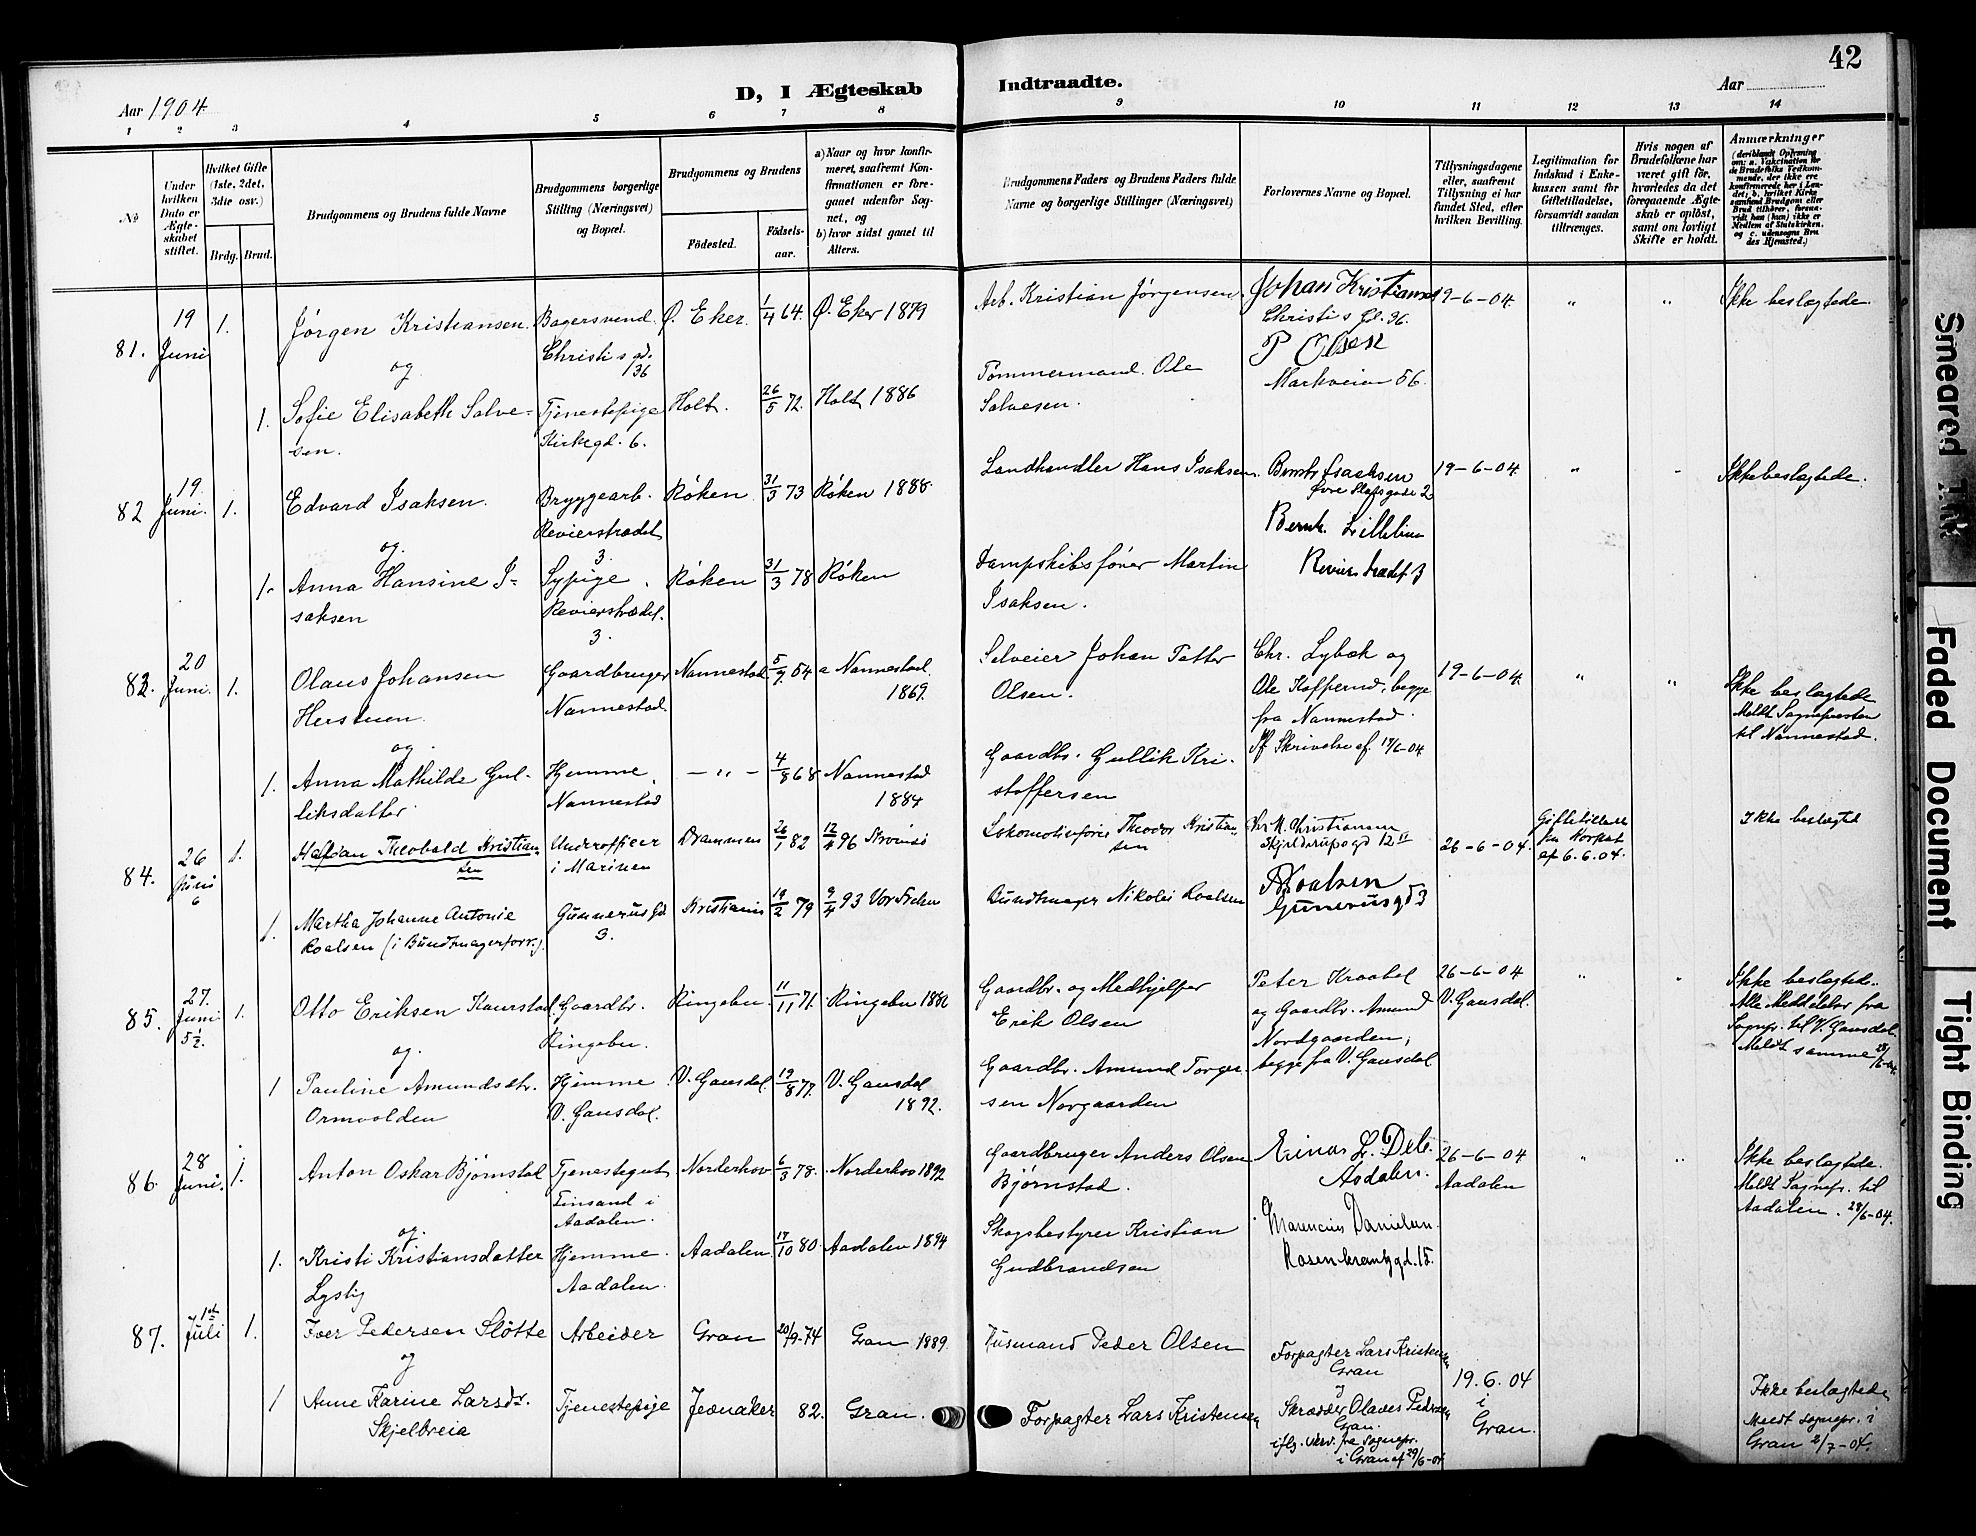 42
Aar 1904
D, I Ægteskab Indtraadte.
Aar
1 2 3 4 5 6 7 8 9 10 11 12 13 14
No
Under hvilken Dato er Ægteskabet stiftet.
Hvilket Gifte (1ste, 2det, 3die osv.)
Brdg. Brud.
Brudgommens og Brudens fulde Navne
Brudgommens borgerlige Stilling (Næringsvei) og Bopæl.
Brudgommens og Brudens
Fødested.
Fødselsaar.
a) Naar og hvor konfirmeret, saafremt Konfirmationen er foregaaet udenfor Sognet, og
b) hvor sidst gaaet til Alters.
Brudgommens Faders og Brudens Faders fulde Navne og borgerlige Stillinger (Næringsvei)
Forlovernes Navne og Bopæl.
Tillysningsdagene eller, saafremt Tillysning ei har fundet Sted, efter hvilken Bevilling.
Legitimation for Indskud i Enkekassen samt for Giftetilladelse, forsaavidt saadan tiltrænges.
Hvis nogen af Brudefolkene har været gift før, hvorledes da det foregaaende Ægteskab er opløst, samt om lovligt Skifte er holdt.
Anmærkninger
81. 19 Juni 1. Jørgen Kristiansen Bagersvend. Christi s gd. 36 Ø. Eker 1/4 64. Ø. Eker 1879 Arb. Kristian Jørgensen. Johan Kristiansen Christi s gd. 36. 19-6-04. " " Ikke beslægtede
og
1. Sofie Elisabeth Salvesen. Tjenestepige Kirkegd. 6. Holt. 26/5 72. Holt 1886 Tømmermand Ole Salvesen. P Olsen Markveien 56.
82 19 Juni. 1. Edvard Isaksen. Bryggearb. Revierstrædet 3. Røken 31/3 73 Røken 1888. Landhandler Hans Isaksen. Isachsen Øvre Slotsgade 2 19-6-04. " Ikke beslægtede.
og.
1. Anna Hansine Isaksen Sypige. Revierstrædet. 3. Røken 31/3 78 Røken Dampskibsfører Martin Isaksen. Bernh. Revierstrædet 3
83. 20 Juni. 1. Olaus Johansen Herstuen. Gaardbruger Nannestad. Nannestad 5/7 54 a Nannestad. 1869. Selveier Johan Petter Olsen. Chr. Lybæk og Ole begge fra Nannestad. Sf. Skrivelse af 17/6-04 19-6-04. " " Ikke beslægtede Meldt Sognepresten til Nannestad.
og
1. Anna Mathilde Gulliksdatter Hjemme. Nannestad — " — 4/8 68 Nannestad 1884 Gaardbr. Gullik Kristoffersen
84. 26 Juni 6 1. Halfdan Theobald Kristiansen Underofficer i Marinen Drammen 26/1 82 12/4 96 Strømsø Lokomotivfører Theodor Kristiansen Christiansen Skjelderupsgd 12 II 26-6-04. Giftetilladelse fra af 6.6.04. Ikke beslægted
1. Martha Johanne Antonie Roalsen (i Bundtmagerforr.). Gunnerus gd 3. Kristiania 19/2 79 9/4 93 Vor Frelser Bundtmager Nikolai Roalsen Roalsen Gunerusgd 3
85. 27. Juni 5½. 1. Otto Eriksen Kaurstad. Gaardbr. Ringebu. Ringebu. 11/11 71. Ringebu 1886 Gaardbr. og Medhjelper Erik Olsen Peter Kraabøl og Gaardbr. Amund Nordgaarden, begge fra V. Gausdal 26-6-04 V. Gausdal. " " Ikke beslægtede. Alle Meddelelser fra Sognepr. til V. Gausdal. Meldt samme 28/6-04.
og
1 Pauline Amundsdtr. Ormvolden Hjemme V. Gausdal. V. Gausdal. 19/8 77. V. Gausdal 1892. Gaardbr. Amund Torgersen Norgaarden
86. 28 Juni. 1. Anton Oskar Bjørnstad Tjenestegut Finsand i Aadalen. Norderhov 6/3 78. Norderhov 1892 Gaardbruger Anders Olsen Bjørnstad. Einar L. Dele Aadalen. 26-6-04 Aadalen " " Ikke beslægtede. Meldt Sognepr. til Aadalen. 28/6-04.
og
1. Kristi Kristiansdatter Lyslig Hjemme. Aadalen. Aadalen. 17/10 80 Aadalen 1894 Skogbestyrer Kristian Gudbrandsen Marencius Danielsen. Rosenkrantzgd. 15.
87. 1st Juli 1. Iver Pedersen Sløtte Arbeider Gran 20/9-74 Gran 1889. Husmand Peder Olsen Forpagter Lars Kristensen Gran 19.6.04 i Gran. Ikke beslægtede Meldt sognepr. i Gran 2/7-04.
og
1 Anne Karine Larsdr. Skjelbreia Tjenestepige Jevnaker 82. Gran. Forpagter Lars Kristensen og Skrædder Olaves Pedersen Gran. iflg. skriv. fra sognepr. i Gran af 29/6-04
Smeared Ink
Faded Document
Tight Binding